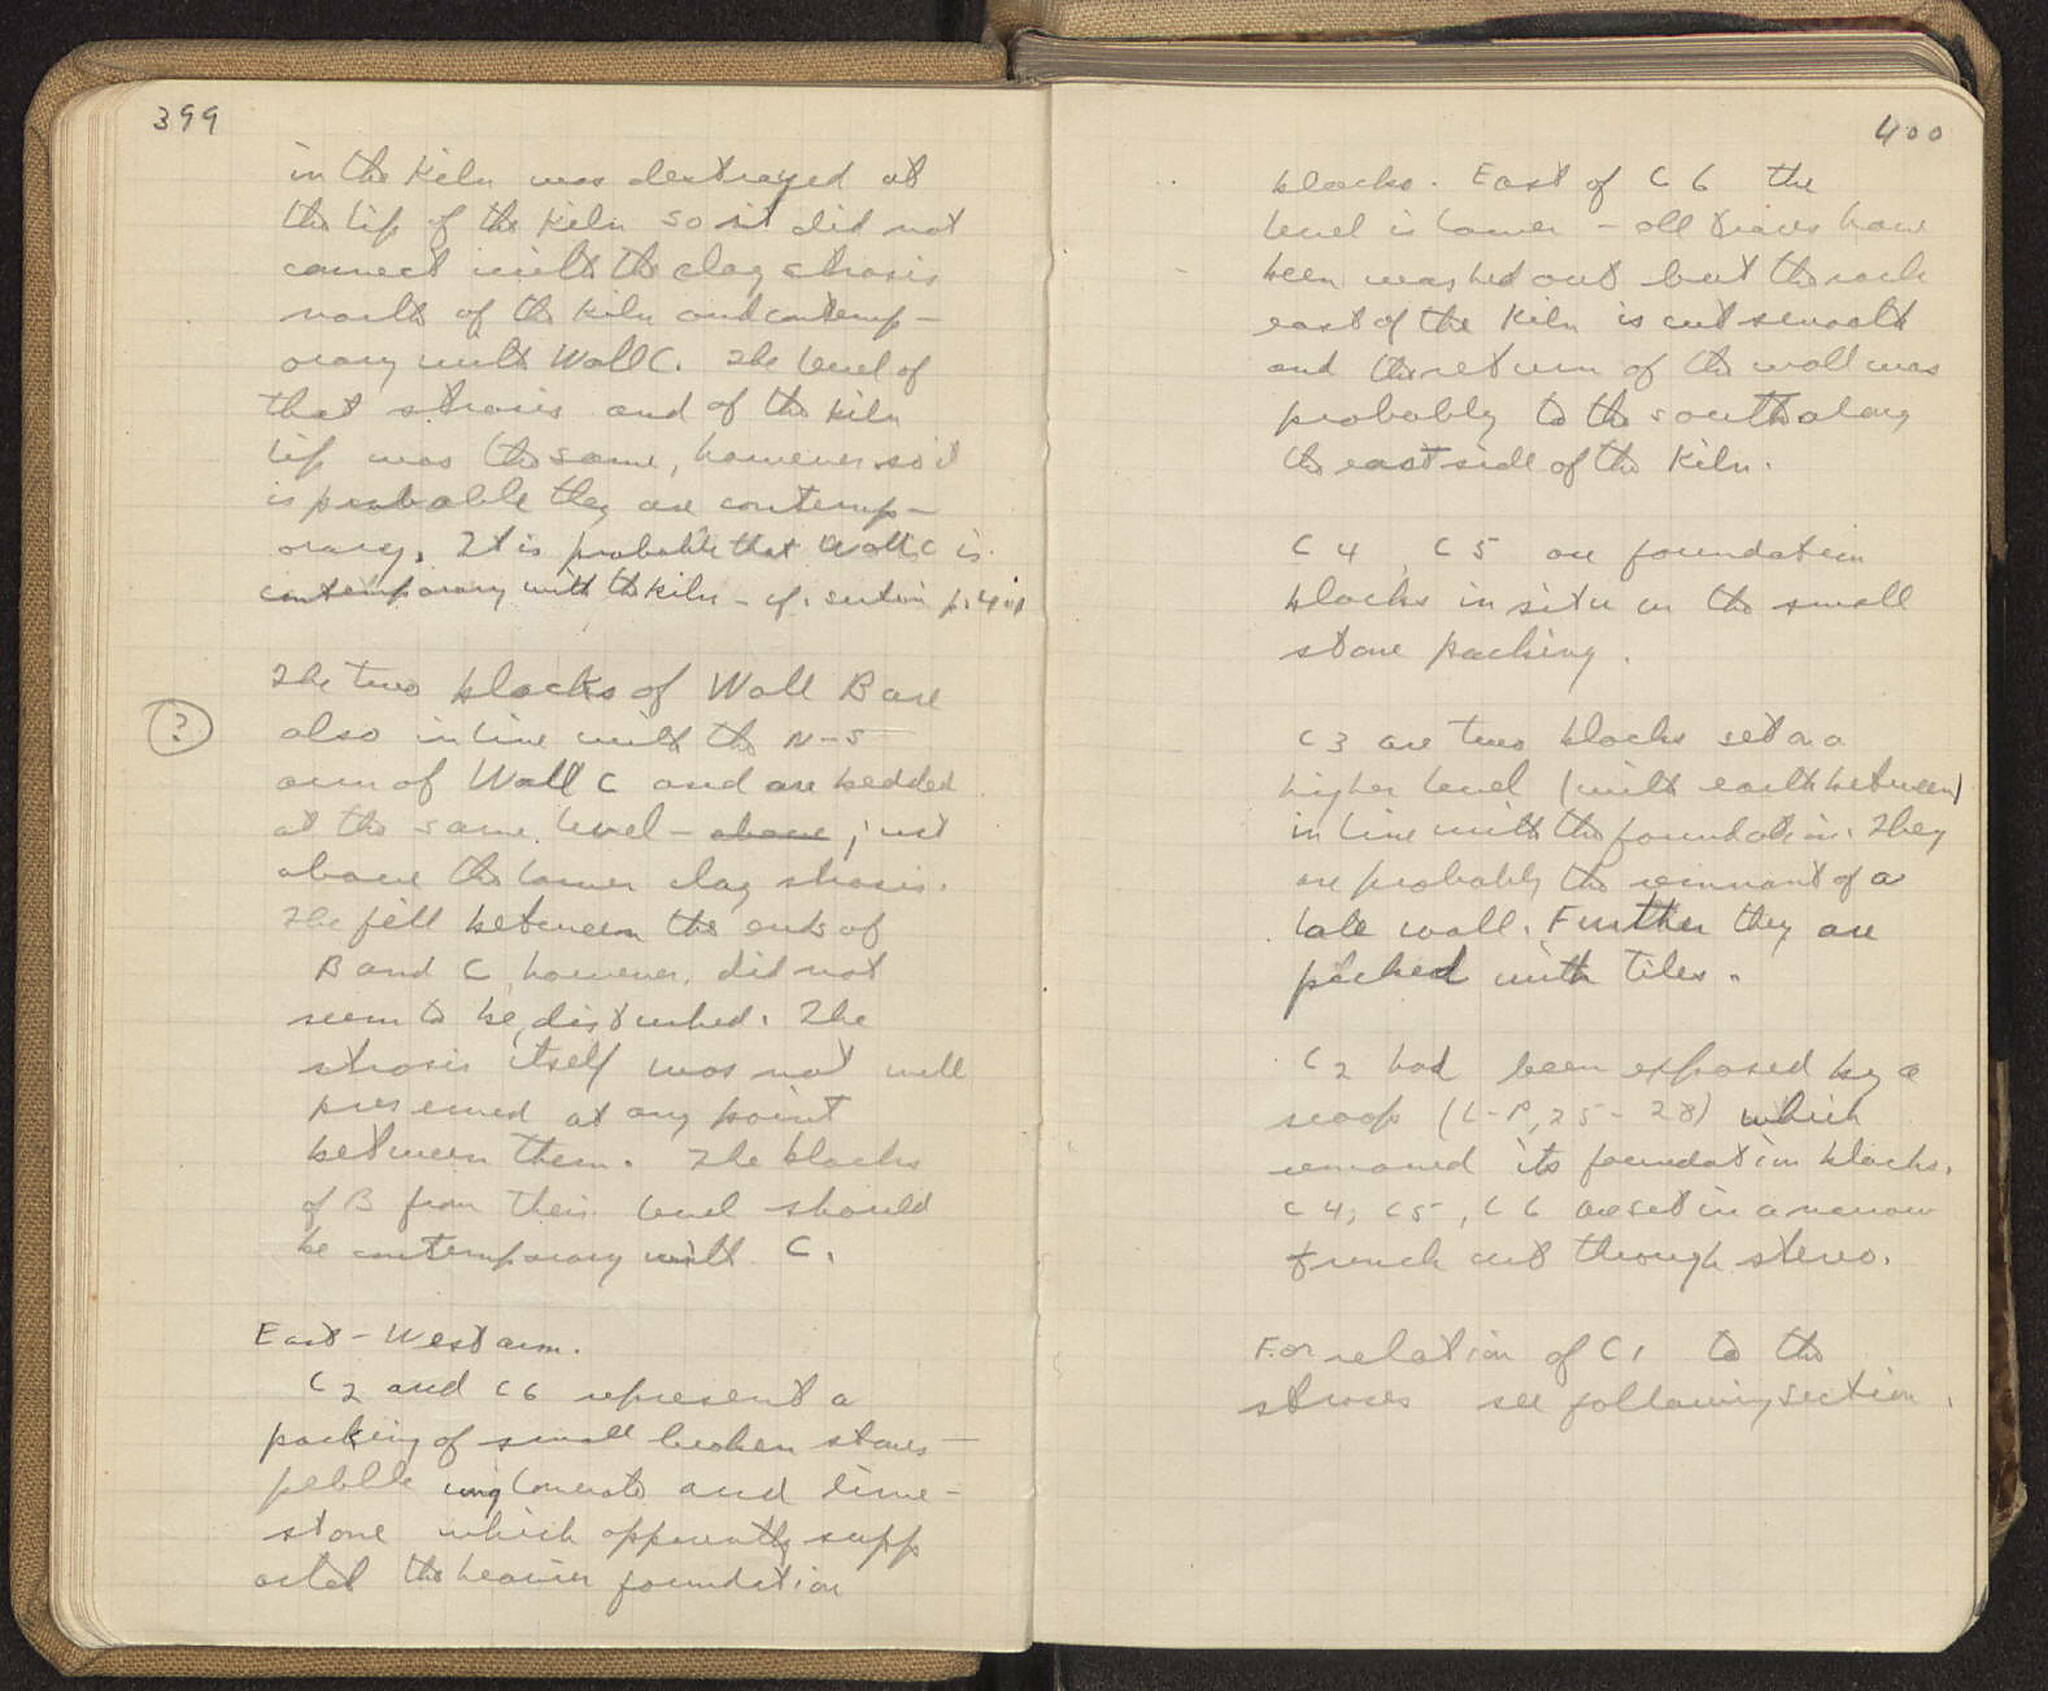 399
in the kiln was destroyed at
the lip of the kiln so it did not
connect with the clay strosis
north of the kiln and contemp-
orary with Wall C. The level of
that strosis and of the kiln
lip was the same, however, so it
is probable they are contemp-
orary. It is probable that Wall C is
contemporary with the kiln - cf. section p. 401
The two blocks of Wall B are
?
also in line with the N-S
arm of Wall C and are bedded
at the same level - above just
above the lower clay strosis.
The fill between the ends of
B and C, however, did not
seem to be disturbed. The
strosis itself was not well
preserved at any point
between them. The blocks
of B from their level should
be contemporary with C.
East-West arm.
C2 and C6 represent a
packing of small broken stones -
pebble conglomerate and lime-
stone which apparently supp
orted the heavier foundation
400
blocks. East of C6 the
level is lower - all traces have
been washed out but the rock
east of the kiln is cut smooth
and the return of the wall was
probably to the south along
the east side of the kiln.
C4, C5 are foundation
blocks in situ on the small
stone packing.
C3 are two blocks set on a
higher level (with earth between)
in line with the foundation. They
are probably the remnant of a
late wall. Further they are
packed with tiles.
C2 had been exposed by a
scoop (L-P, 25-28) which
removed its foundation blocks.
C4, C5, C6 are set in a narrow
trench cut through stereo.
For relation of C1 to the
stroses see following section.